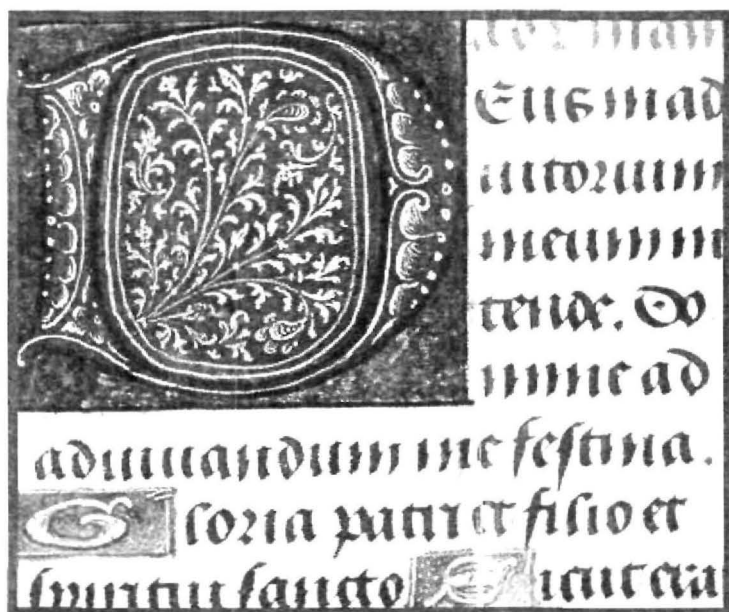 DEus in ad
iutorium
meum in
tende. Do
mine ad
adiuuandum me festina.
Gloria patri et filio et
spiritui sancto Sicut era